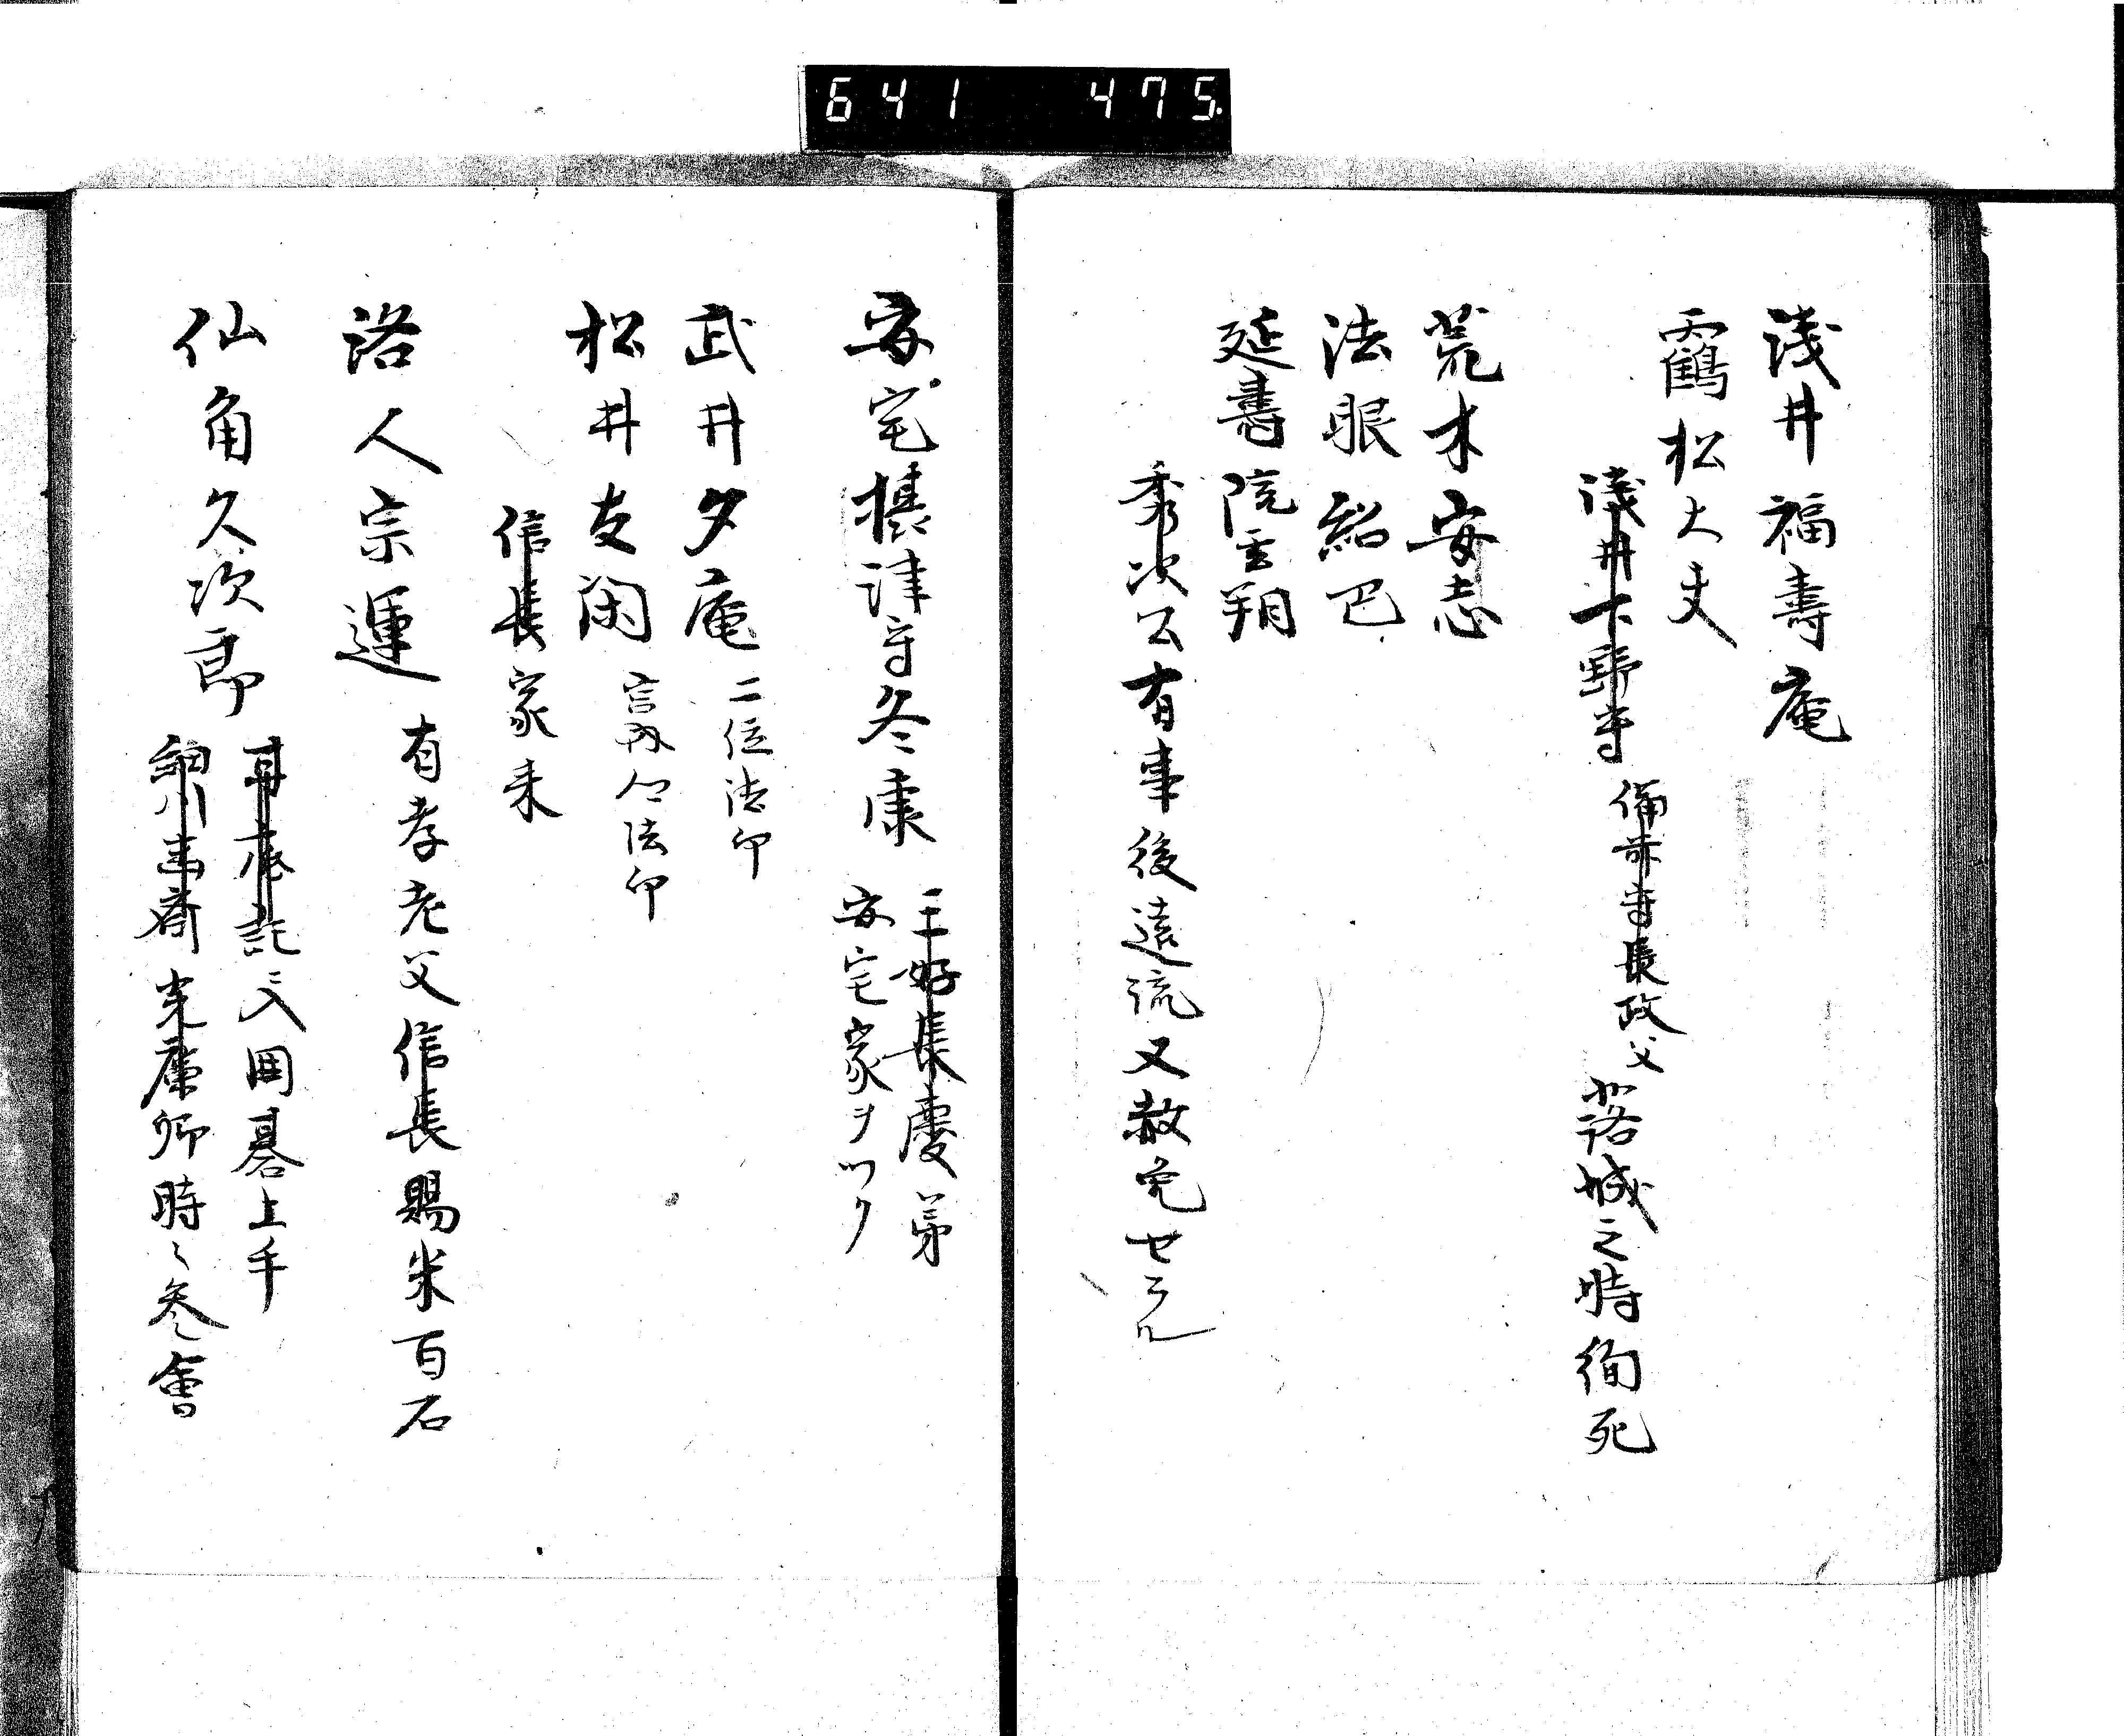 641 475.
浅井福壽庵
靏松大夫
浅井下野守 備前守長政父 落城之時徇死
荒木安志
法眼紹巴
延壽院玄朔
秀次公有事後遠流又赦免セラル
安宅摂津守冬康 三好長慶弟
安宅家ヲツク
武井夕庵 二位法印
松井友閑 宮内卿法印
信長家来
洛人宗運 有孝老父信長賜米百石
仙角久次郎 耳底記ニ入囲碁上手
細川幽斎 光廣卿時々参會